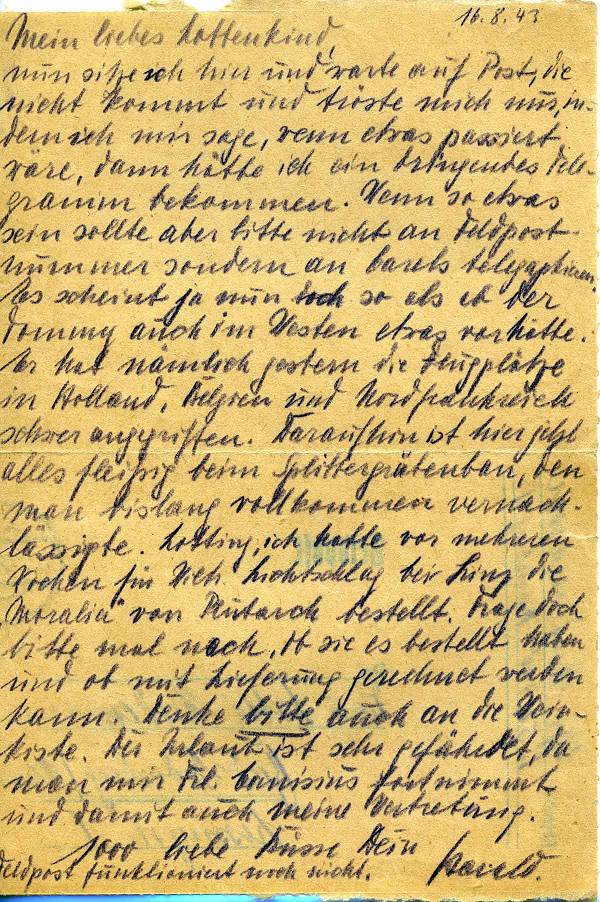 16.8.43
Mein liebes Lottenkind,
nun sitze ich hier und warte auf Post, die
nicht kommt und tröste mich nur, in-
dem ich mir sage, wenn etwas passiert
wäre, dann hätte ich ein dringendes Tele-
gramm bekommen. Wenn so etwas
sein sollte aber bitte nicht an Feldpost-
nummer sondern an telegraphieren.
Es scheint ja nun doch so als ob der
Tommy auch im Westen etwas vorhätte.
Er hat nämlich gestern die Flugplätze
in Holland, Belgien und Nordfrankreich
schwer angegriffen. Daraufhin ist hier jetzt
alles fleißig beim Splittergräbenbau, den
man bislang vollkommen vernach-
lässigte. Lotting, ich hatte vor mehreren
Wochen für Lichtschlag bei die
"Moralia" von Plutarch bestellt. Frage doch
bitte mal nach, ob sie es bestellt haben
und ob mit Lieferung gerechnet werden
kann. Denke bitte auch an die Wein-
kiste. Der Urlaub ist sehr gefährdet, da
man mir Frl. Canisius fortnimmt
und damit auch meine Vertretung.
1000 liebe Küsse Dein
Harald.
Feldpost funktioniert noch nicht.